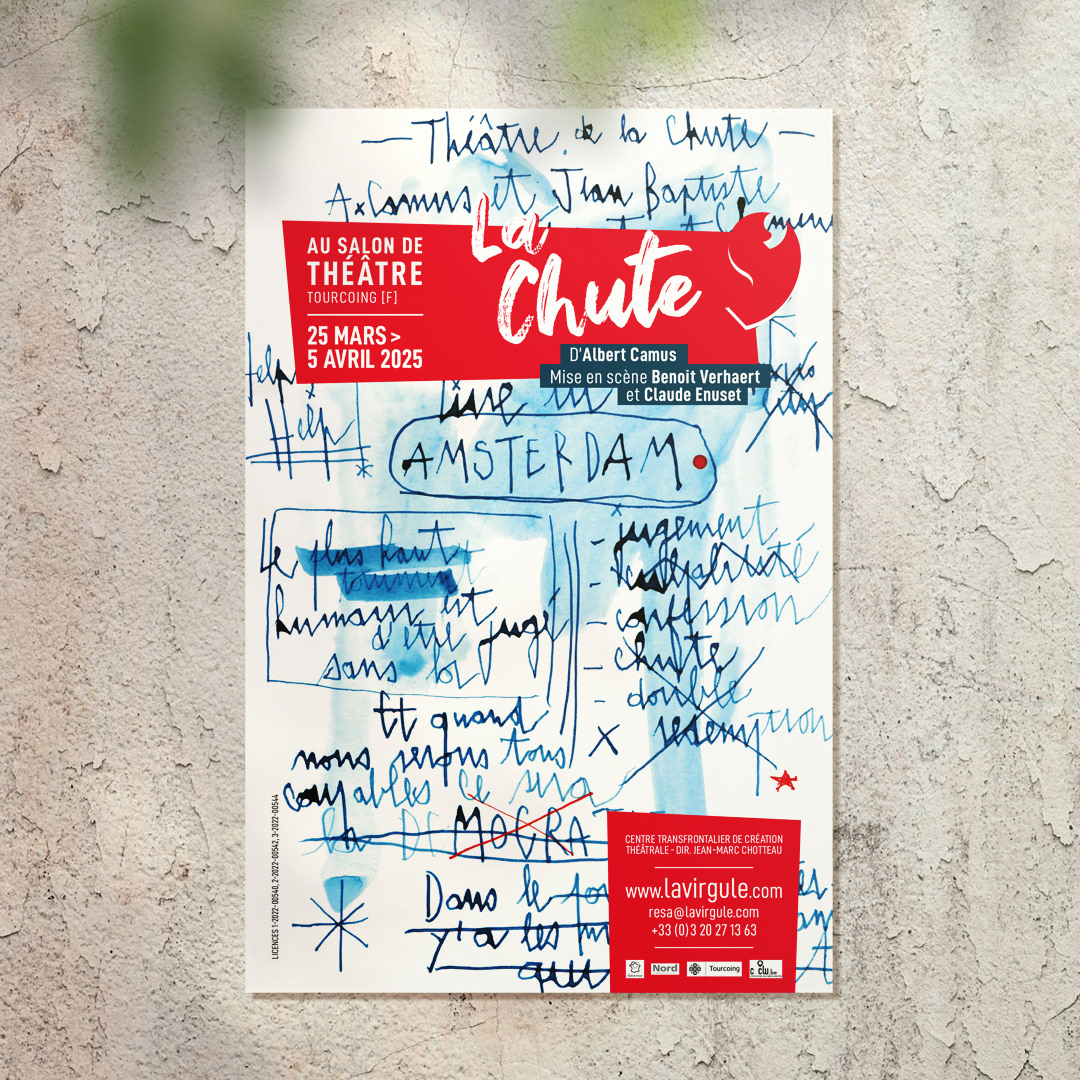 — Théâtre de la Chute —
A x Camus et Jean Baptiste
Clamens
La
Chute
AU SALON DE
THÉÂTRE
TOURCOING [F]
25 MARS >
5 AVRIL 2025
D'Albert Camus
Mise en scène Benoit Verhaert
et Claude Enuset
Help
Help
AMSTERDAM
Le plus haut
tourment
humain est
d'être jugé
sans loi
- jugement
- culpabilité
- confession
- chute
double
x rédemption
Et quand
nous serons tous
coupables ce sera
la DÉMOCRATIE
Dans le
y'a les
qui
LICENCES 1-2022-00540, 2-2022-00542, 3-2022-00544
CENTRE TRANSFRONTALIER DE CRÉATION
THÉÂTRALE - DIR. JEAN-MARC CHOTTEAU
www.lavirgule.com
resa@lavirgule.com
+33 (0)3 20 27 13 63
Nord
Tourcoing